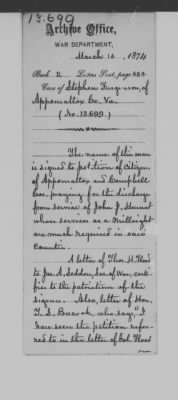 13.690
Archive Office,
WAR DEPARTMENT,
March 12, 1874
Book 2 Letters Sent, page 494
Case of Stephen Ferguson, of
Appomattox Co. Va.
(No. 13.699.)
The name of this man
is signed to petition of citizens
of Appomattox and Campbell
Cos. praying for the discharge
from service of John J. Stewart
whose services as a Millwright
are much required in said
Counties.
A letter of Thos. H. Flood
to Jas. A. Seddon, Sec. of War, certi-
fies to the patriotism of the
signers. Also, letter of Hon.
T. S. Bocock, who says, I
have seen the petition refer-
red to in the letter of Col. Flood